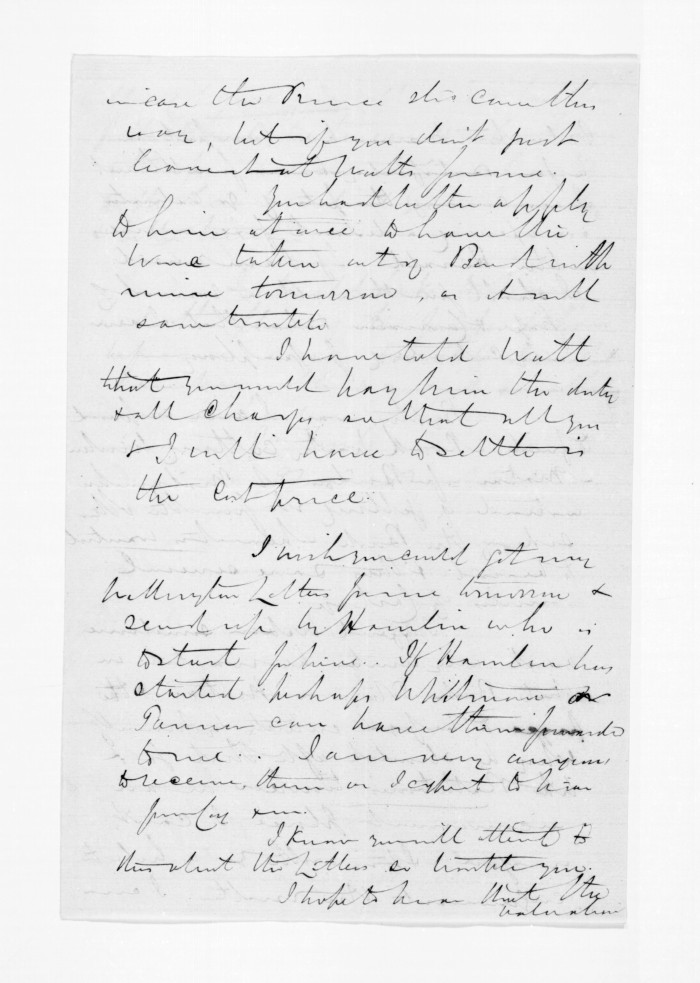 in case the Prince does come this
way, but if you don't just
leave it at Watts for me.
You had better apply
to him at once to have the
wine taken out of Bond with
mine tomorrow, as it will
save trouble
I have told Watt
that you would pay him the duty
& all charges so that all you
& I will have to settle is
the Cost price.
I wish you could get my
Wellington Letters for me tomorrow &
send up by Hamlin who is
to start for here. If Hamlin has
started perhaps Whitmore or
Tanner can have them forwarded
to me.. I am very anxious
to receive them as I expect to hear
from
I know you will attend to
this about the Letters so trouble you.
I hope to hear that the
valuation